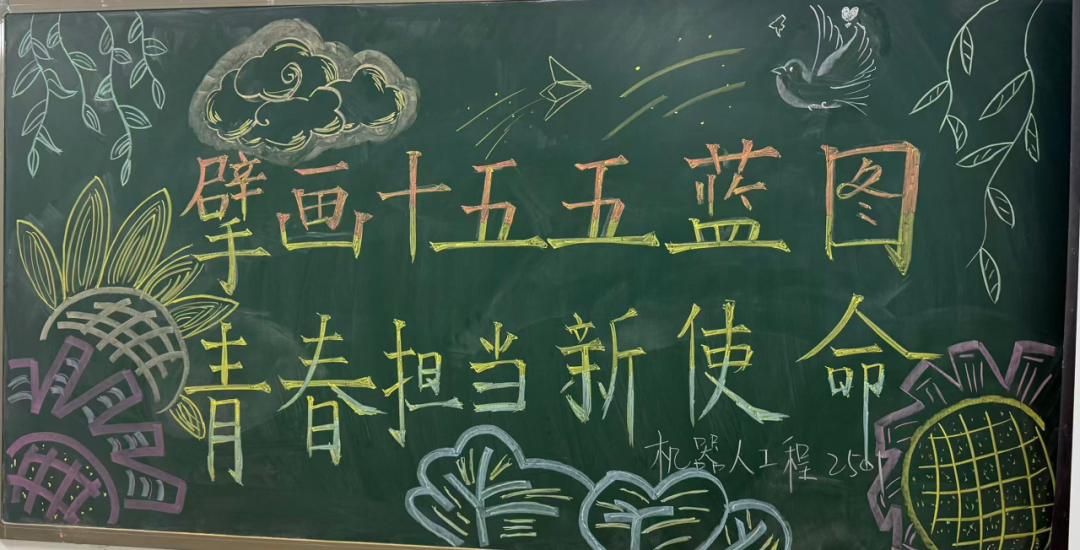 擘画十五五蓝图
青春担当新使命
机器人工程2501